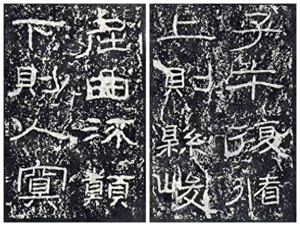 子午復循
上則縣峻
屈曲流顛
下則入冥